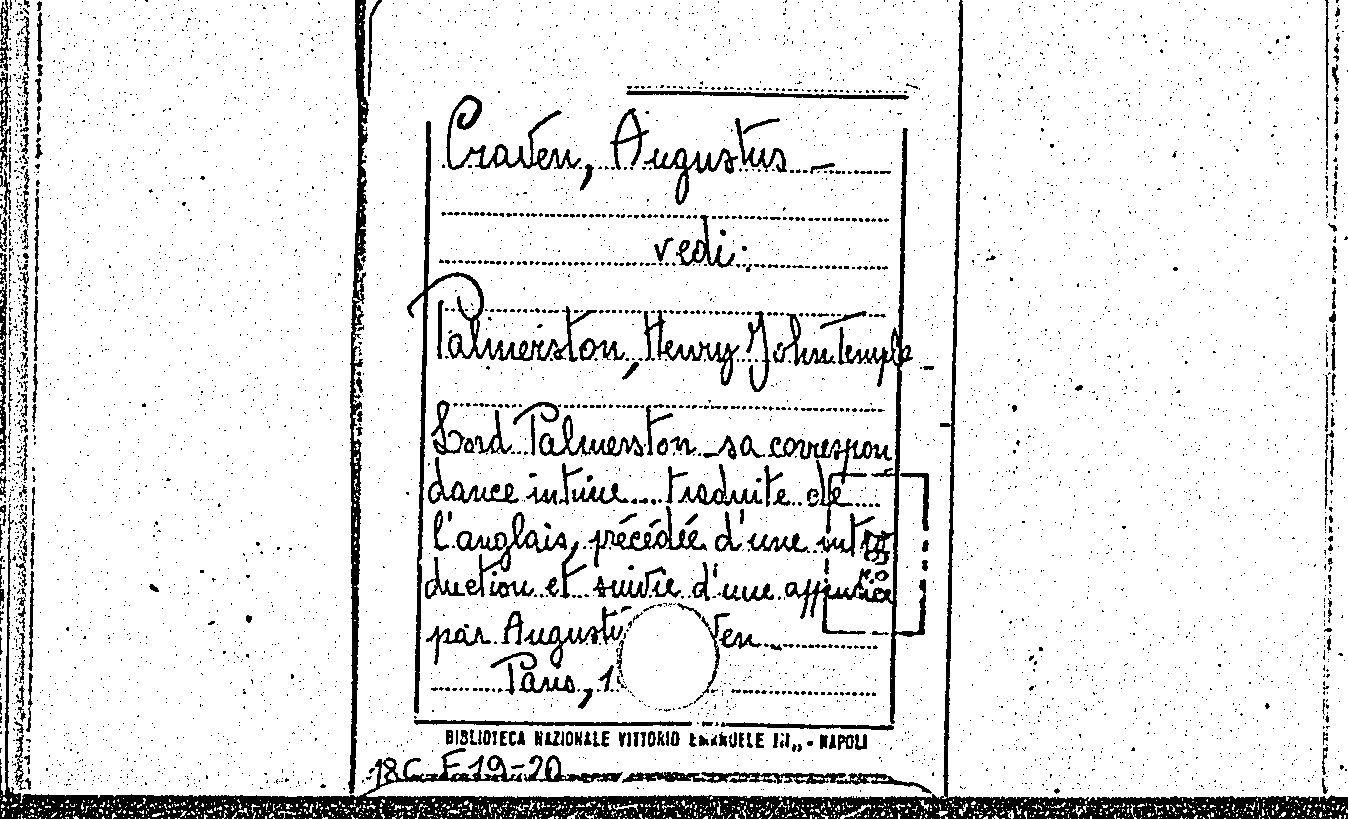 Craven, Augustus –
vedi:
Palmerston, Henry John Temple
Lord Palmerston – sa correspon
dance intime... traduite de
l'anglais, précédée d'une intro
duction et suivie d'une appendice
par
Paris,
BIBLIOTECA NAZIONALE VITTORIO EMANUELE III,, - NAPOLI
18C F 19-20